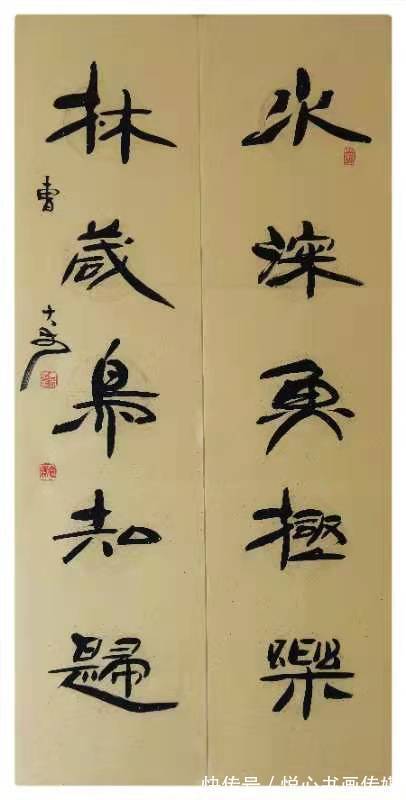 水深魚極樂
林茂鳥知歸
曹大
快传号/悦心书画传媒